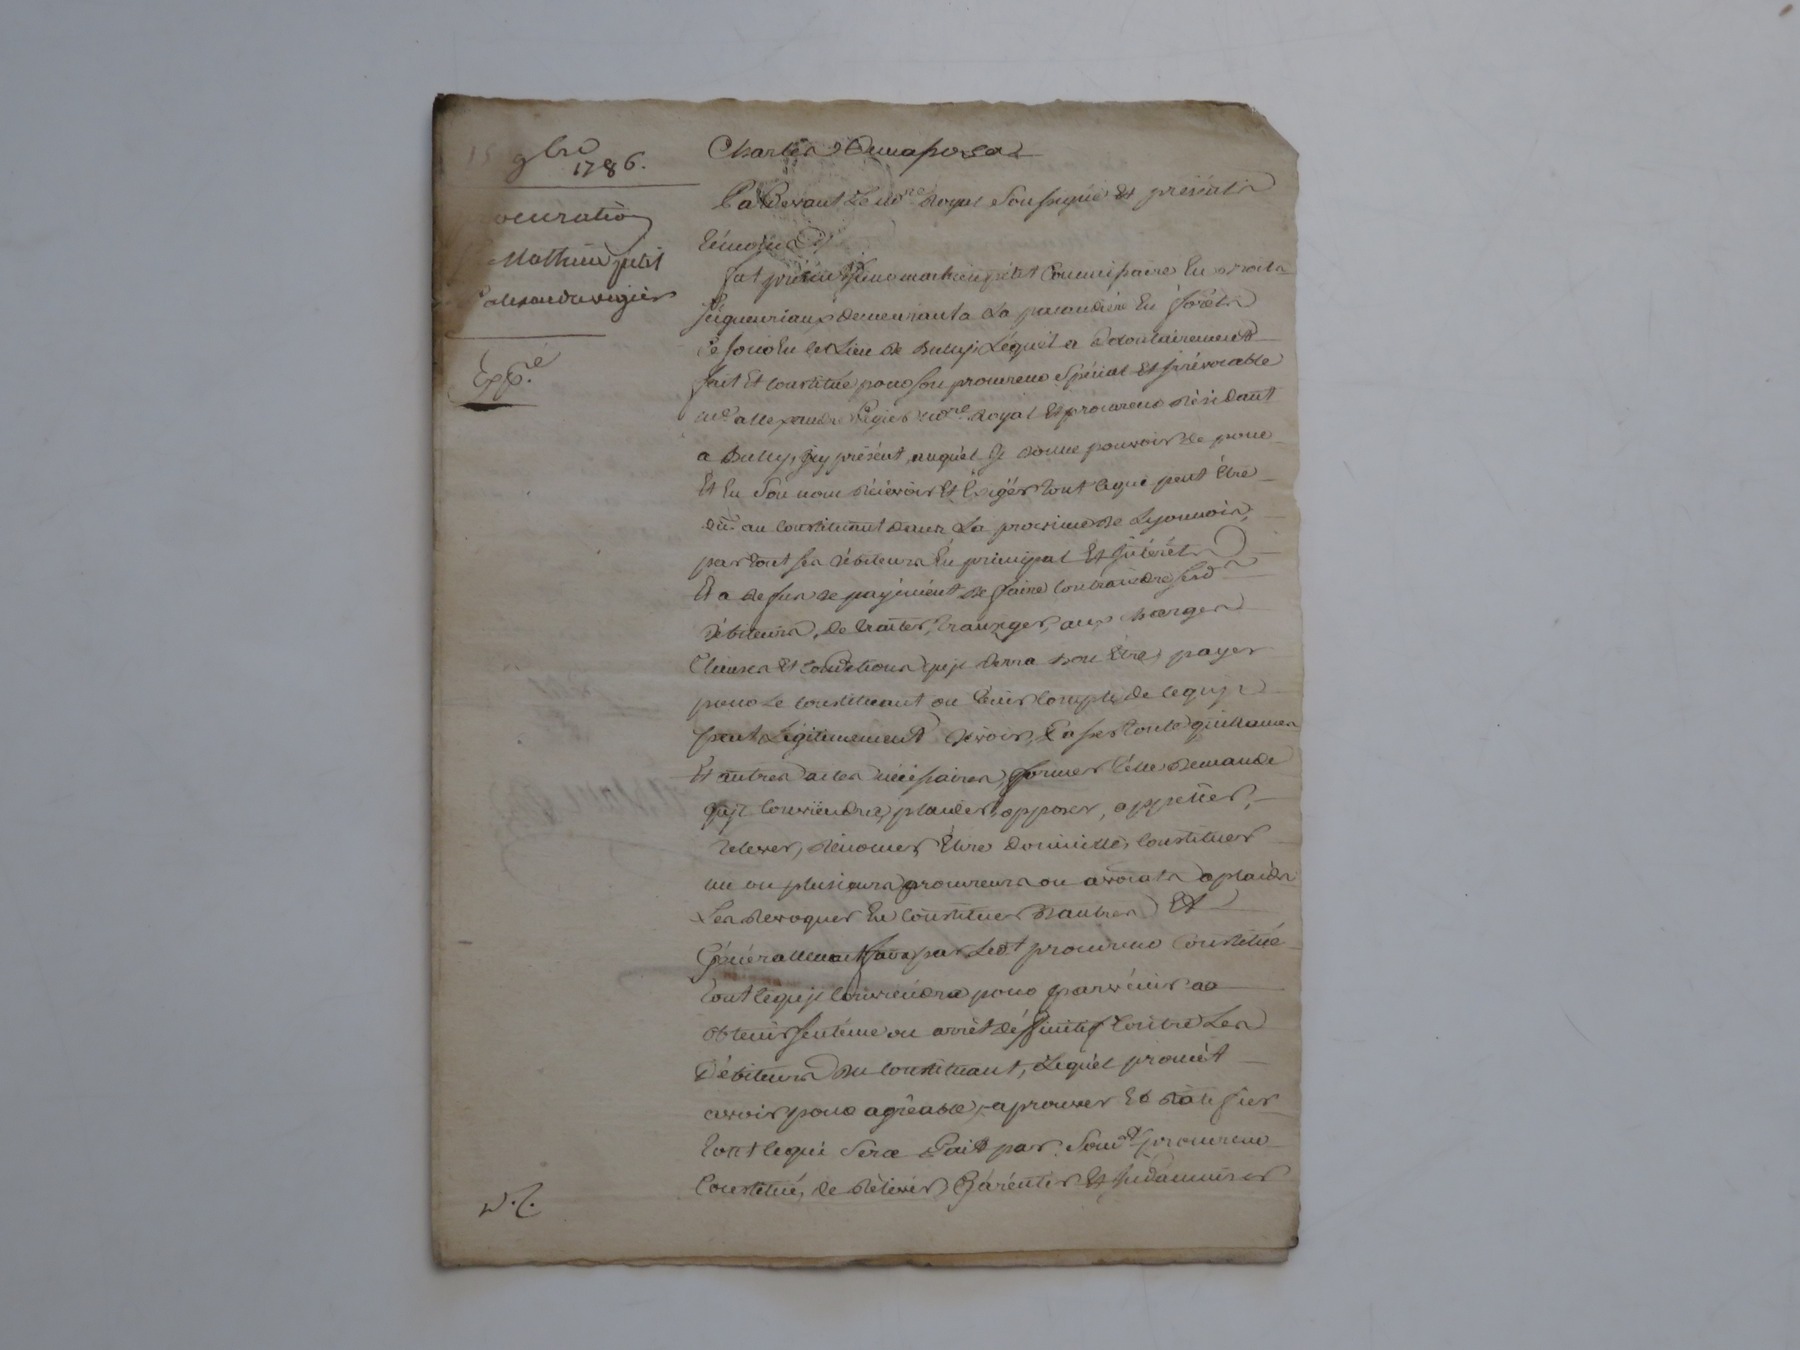 15 9bre
1786.
ocuration
Mathieu petit
alexandre vigier
Expé.
Pardevant le nore Royal soussigné et présents
témoins
fut présent sieur mathieu petit Commissaire En droits
seigneuriaux demeurant a La pacaudiere En forêts
de ... En ce Lieu de Bully Lequel a volontairement
fait Et Constitué pour son procureur spécial Et irrévocable
me allexandre Vigier nore Royal Et procureur Résidant
a Bully, icy présent, auquel il donne pouvoir de pour
Et En son nom Récévoir Et Exigér tout cequi peut Etre
dû au Constituant dans La province de Lyonnois,
par tout ses débiteurs En principal Et intérêts
Et a defus de payement de faire Contraindre sesd
débiteurs, de traiter, tranxiger, aux charges
Clauses Et Conditions qu'il verra bon Etre, payer
pour Le Constituant ou tenir Compte de cequ'il
peut Légitimement devoir, Passer toute quittances
Et autres actes nécéssaires, former telle demande
qu'il Conviendra, plaider, opposer, appeller,
relever, Rénoncer, Elire domicille, Constituer
un ou plusieurs procureurs ou avocats a plaids
Les Revoquer En Constituer d'autres Et
Généralement faire par Ledt procureur Constitué
tout cequ'il Conviendra pour parvénir a
obtenir senténce ou arrêt définitif Contre Les
débiteurs du Constituant, Lequel promét
avoir pour agréable, aprouver Et Ratifier
tout cequi sera fait par sond procureur
Constitué, de Rélévér, Garéntir Et indamniser